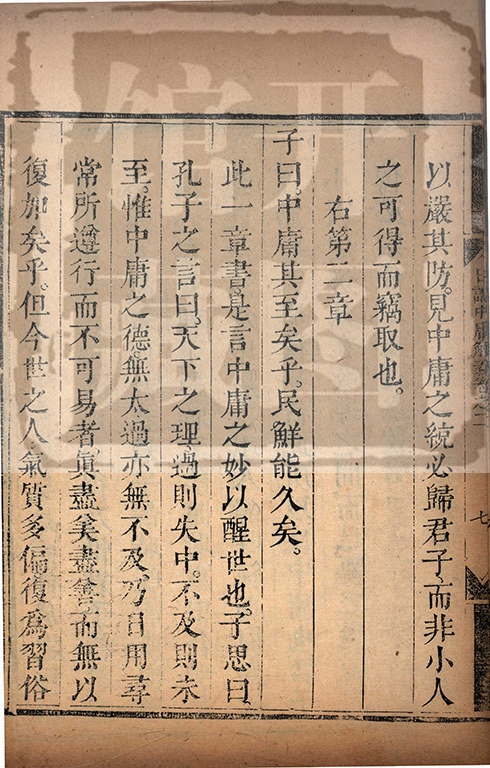 以嚴其防。見中庸之統必歸君子。而非小人
之可得而竊取也。
右第二章
子曰。中庸其至矣乎。民鮮能久矣。
此一章書。是言中庸之妙以醒世也。子思曰
孔子之言曰。天下之理過則失中。不及則未
至。惟中庸之德。無太過亦無不及。乃日用尋
常所遵行而不可易者。眞盡美盡善而無以
復加矣乎。但今世之人氣質多偏。復爲習俗